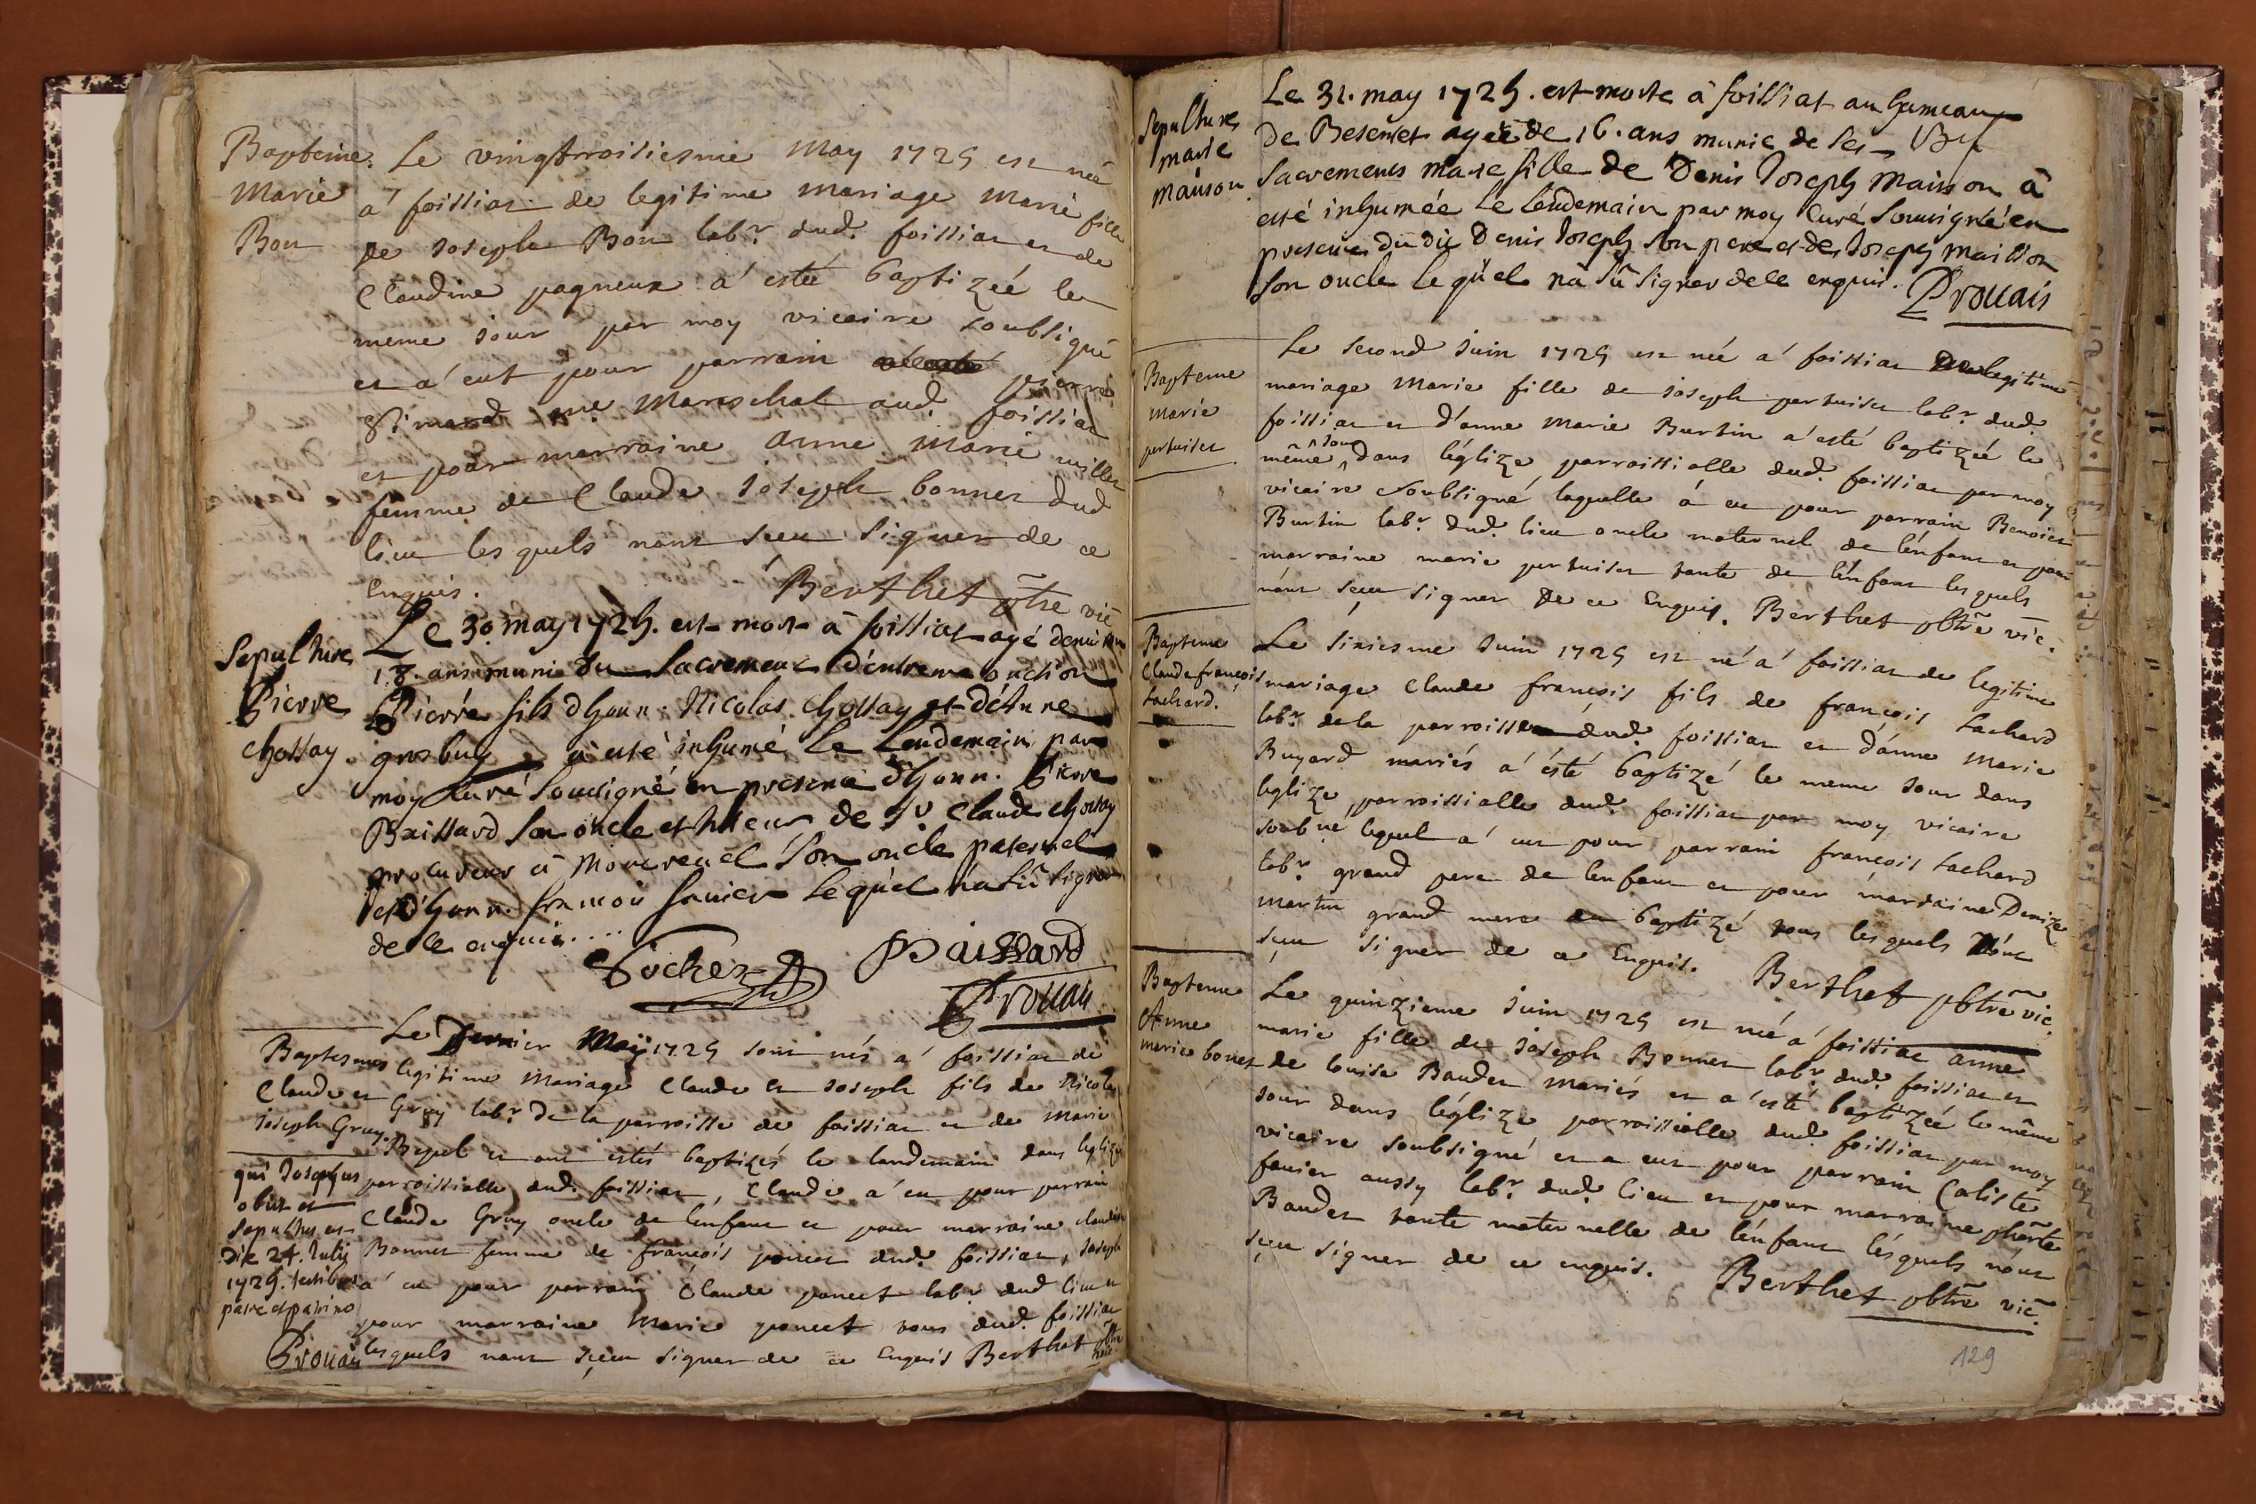 Bapteme
Marie
Bon
Le vingtroisiesme May 1729 est née
a' foissiat de legitime mariage Marie fille
de Joseph Bon labr. dud. foissiat et de
Claudine pagneux a' esté baptizéé le
meme jour par moy vicaire soubsigné
et a' eut pour parrain pierre
mareschal aud. foissiat
et pour marraine anne marie millet
femme de Claude Joseph bonnet dud
lieu les quels nont sceu signer de ce
Enquis. Berthet ptre vic
Sepulture
Pierre
Chossay
Le 30 may 1729. est mort â foissiat agé denviron
18. ans muni du Sacrement d'extreme onction
Pierre fils dhonn. Nicolas Chossay et d'Anne
grosbuy a esté inhumé le lendemain par
moy curé soussigné en presence d'honn. Pierre
Baissard son oncle et tuteur de Sr Claude Chossay
procureur â Montrevel son oncle paternel
et d'honn. francois favier lequel na sû signer
de ce enquis....
Sochez Baissard
Prouais
Baptesmes
Claude et
Joseph Gruy.
Le Dernier May 1729 sont nés a' foissiat de
legitime mariage Claude et Joseph fils de Nicolas
Gruy labr. de la parroisse de foissiat et de Marie
et ont estés baptizés le landemain dans leglize
parroissialle dud. foissiat, Claude a' eu pour parrain
Claude Gruy oncle de l'enfant et pour marraine claudine
Bonnet femme de françois poncet dud. foissiat, Joseph
a' eu pour parrain Claude poncet labr. dud lieu et
pour marraine Marie poncet tous dud. foissiat
lesquels nont sceu signer de ce Enquis Berthet ptre
vic
qui Josephus
obiit et
sepultus est
die 24. Julii
1729. testibus
patre et patrino
Prouais
Sepulture
marie
maison
Le 31. may 1729. est morte â foissiat au hameau
de Beseneit agéé de 16. ans munie de ses
Sacrements marie fille de Denis Joseph Maisson â
esté inhumée le lendemain par moy Curé soussigné en
presence du dit Denis Joseph son pere et de Joseph Maisson
son oncle le quel nâ sû signer de ce enquis. Prouais
Bapteme
marie
pertuiset
Le second Juin 1729 est née a' foissiat de legitime
mariage Marie fille de Joseph pertuiset labr. dud.
foissiat et d'anne Marie Burtin a' esté baptizéé le
même jour dans l'églize parroissialle dud. foissiat par moy
vicaire soubsigné laquelle â eu pour parrain Benoist
Burtin labr. dud. lieu oncle maternel de l'enfant et pour
marraine marie pertuiset tante de l'enfant lesquels
nont sceu signer de ce Enquis. Berthet pbtre vic.
Bapteme
Claude françois
tachard.
Le sixiesme Juin 1729 est né a' foissiat de legitime
mariage Claude françois fils de françois tachard
labr. de la parroisse dud. foissiat et d'anne Marie
Buyard mariés a' ésté baptizé le meme jour dans
leglize parroissialle dud. foissiat par moy vicaire
soubné lequel a' eu pour parrain françois tachard
labr. grand pere de lenfant et pour marraine Denize
martin grand mere du baptizé tous lesquels n'ont
sceu signer de ce Enquis. Berthet pbtre vic.
Bapteme
Anne
marie bonet
Le quinzieme Juin 1729 est née a' foissiat anne
marie fille de Joseph Bonnet labr. dud. foissiat et
de louise Baudet mariés et a' esté baptizéé le même
jour dans l'églize parroissialle dud. foissiat par moy
vicaire soubsigné et a eut pour parrain Caliste
favier aussy labr. dud. lieu et pour marraine pherte
Baudet tante maternelle de l'enfant lesquels nont
sceu signer de ce enquis. Berthet pbtre vic.
129